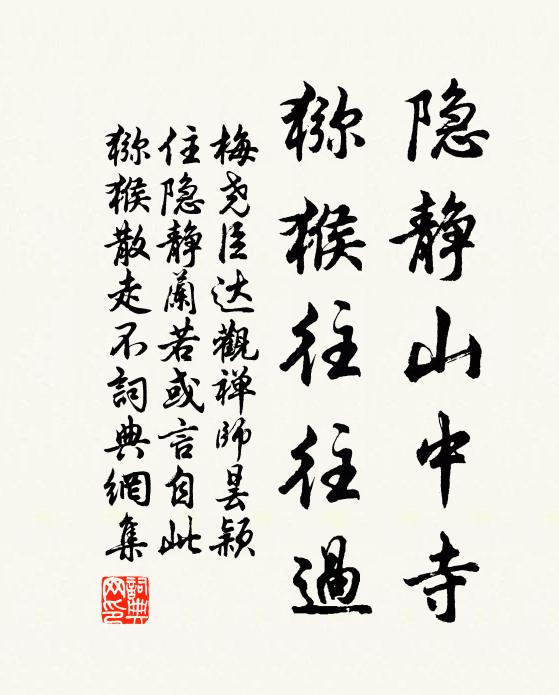 隐静山中寺
猕猴往往過
梅尧臣达觀禅师昙颖
住隐静蘭若或言自此
猕猴散走不詞典網集
詞典網印